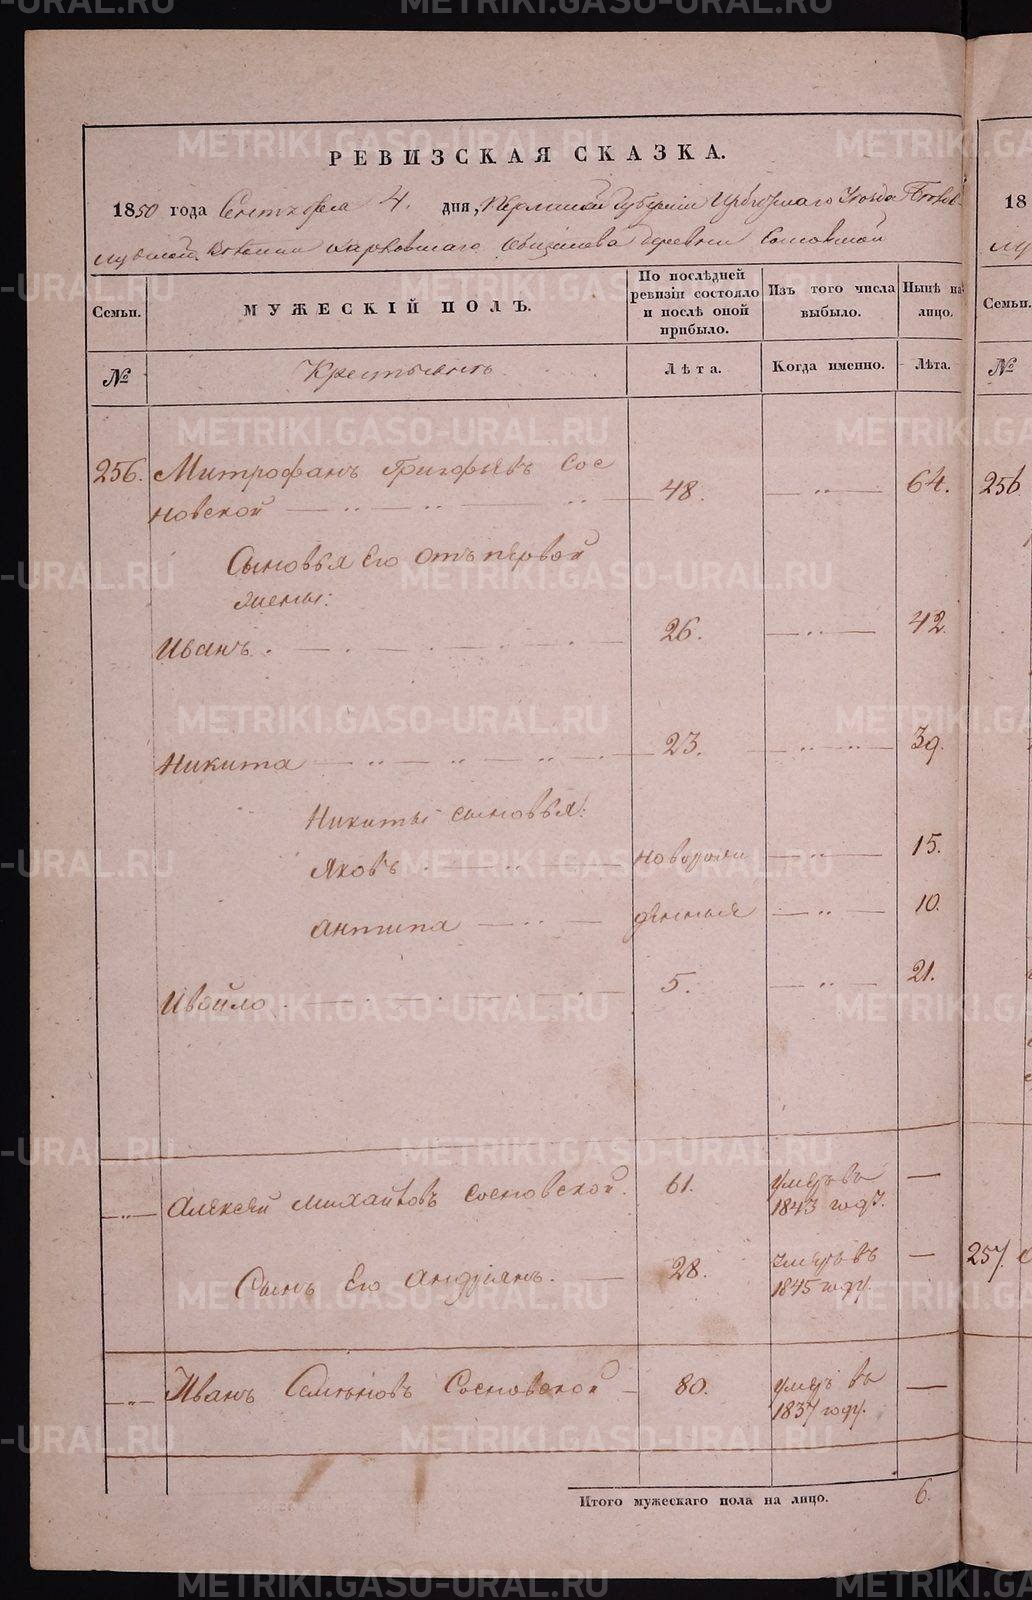 РЕВИЗСКАЯ СКАЗКА.
1850 года Сентября 4. дня, Пермской Губернии Ирбитскаго Уезда
Волости Харловскаго деревни Сосновской
Семьи.
МУЖЕСКІЙ ПОЛЪ.
По послѣдней ревизіи состояло и послѣ оной прибыло.
Изъ того числа выбыло.
Нынѣ на лицо.
№
Крестьянъ
Лѣта.
Когда именно.
Лѣта.
256. Митрофанъ Григорьевъ Сос
новской 48. 64.
Сыновья Его отъ первой
жены:
Иванъ. 26. 42.
Никита 23. 39.
Никиты сыновья:
Яковъ новорож 15.
Антипа денныя 10.
Ивойло 5. 21.
Алексей Михайловъ Сосновской. 61. умеръ въ 1843 году. —
Сынъ Его Андріянъ. 28. умеръ въ 1845 году. —
Иванъ Семеновъ Сосновской 80. умеръ въ 1837 году. —
Итого мужескаго пола на лицо. 6.
18
Семьи.
№
256
257.
METRIKI.GASO-URAL.RU